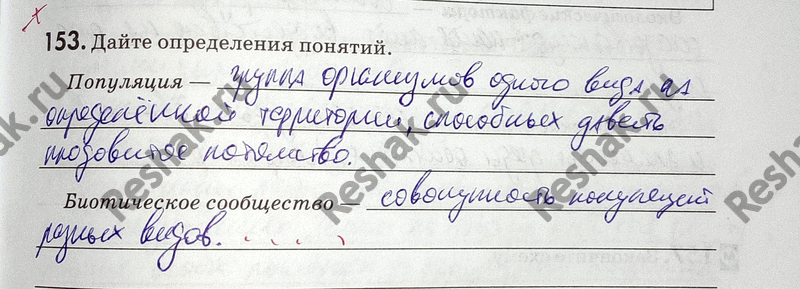 153. Дайте определения понятий.
Популяция — группа организмов одного вида на
определённой территории, способных давать
плодовитое потомство.
Биотическое сообщество — совокупность популяций
разных видов.
Reshak.ru
Reshak.ru
Reshak.ru